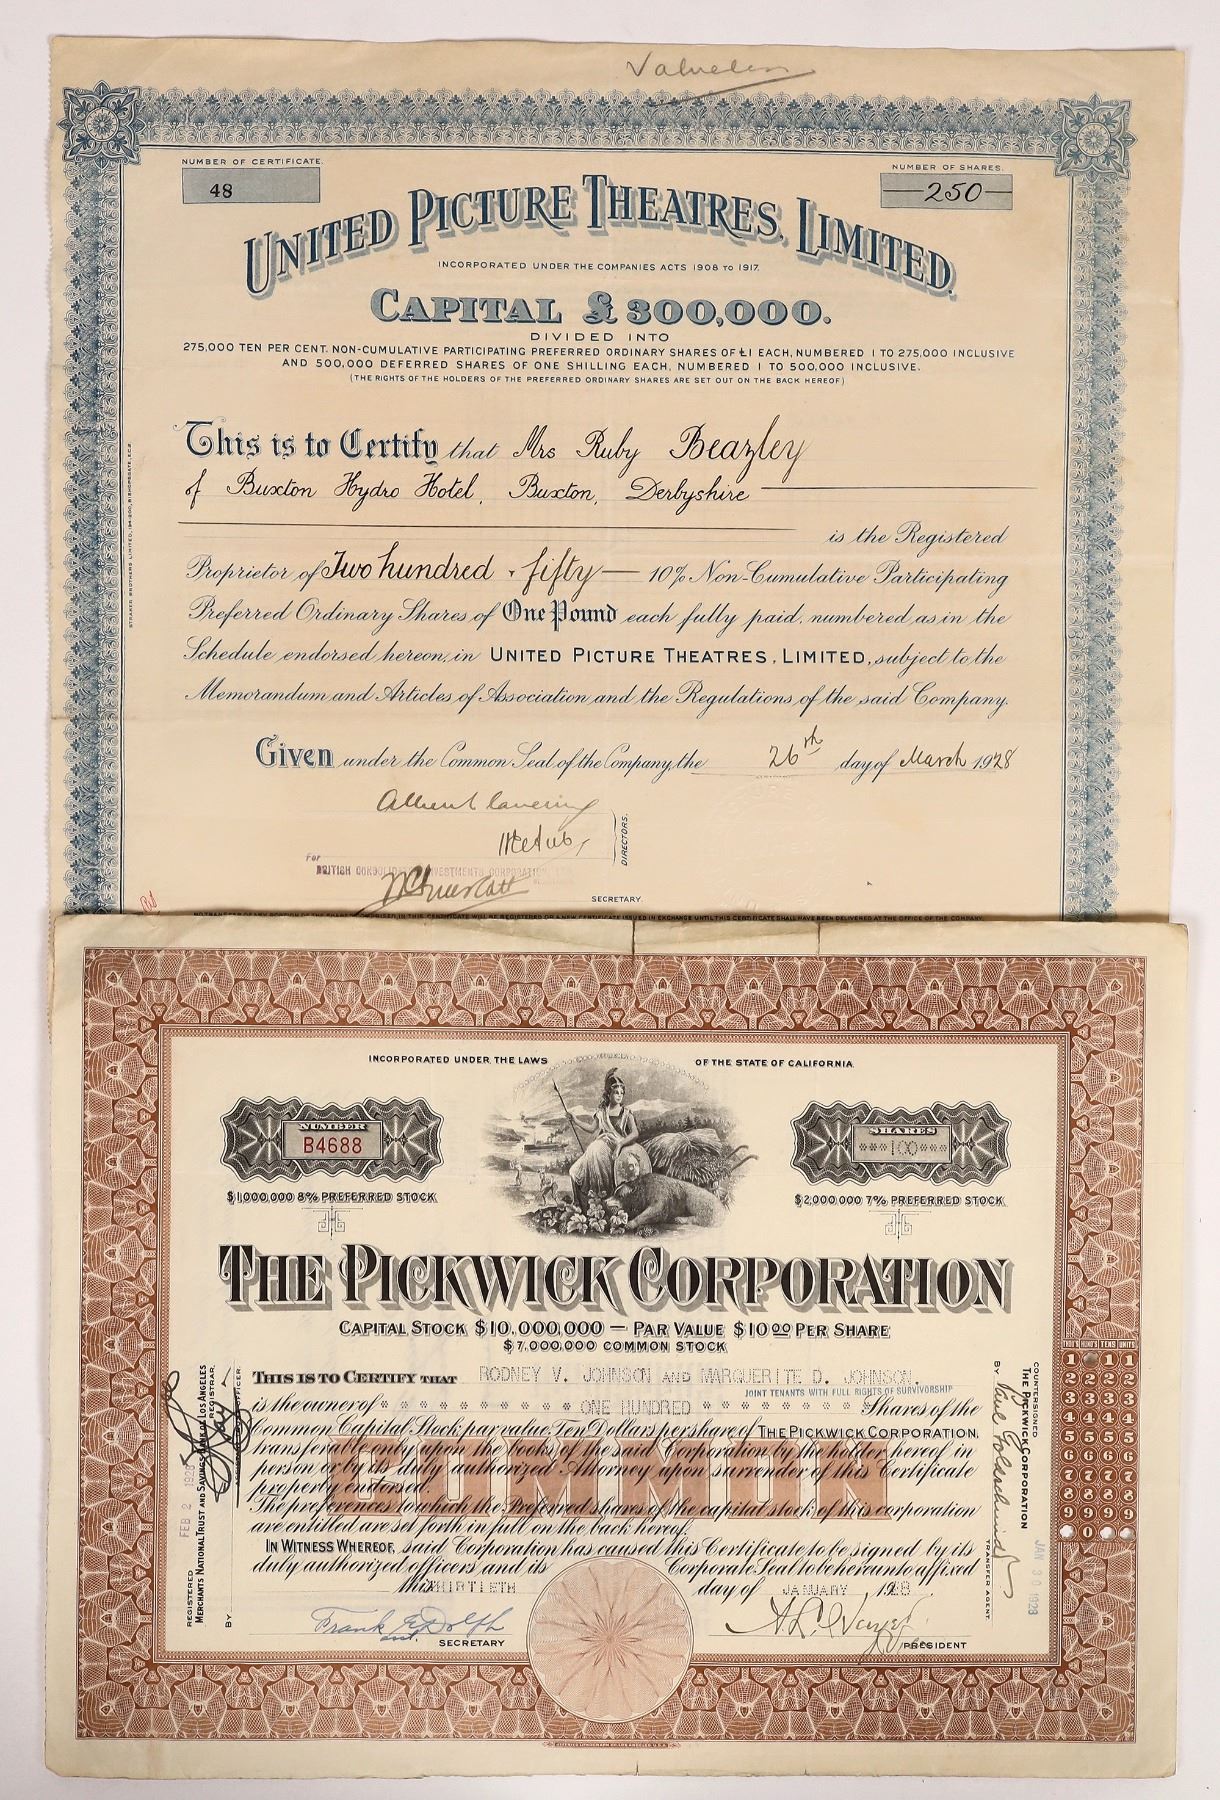 Valueless
NUMBER OF CERTIFICATE.
48
NUMBER OF SHARES.
250
UNITED PICTURE THEATRES, LIMITED.
INCORPORATED UNDER THE COMPANIES ACTS 1908 TO 1917.
CAPITAL £300,000.
DIVIDED INTO
275,000 TEN PER CENT. NON-CUMULATIVE PARTICIPATING PREFERRED ORDINARY SHARES OF £1 EACH, NUMBERED 1 TO 275,000 INCLUSIVE
AND 500,000 DEFERRED SHARES OF ONE SHILLING EACH, NUMBERED 1 TO 500,000 INCLUSIVE.
(THE RIGHTS OF THE HOLDERS OF THE PREFERRED ORDINARY SHARES ARE SET OUT ON THE BACK HEREOF)
This is to Certify that Mrs Ruby Beazley
of Buxton Hydro Hotel, Buxton, Derbyshire
is the Registered
Proprietor of Two hundred & fifty — 10% Non-Cumulative Participating
Preferred Ordinary Shares of One Pound each fully paid, numbered as in the
Schedule endorsed hereon, in UNITED PICTURE THEATRES, LIMITED, subject to the
Memorandum and Articles of Association and the Regulations of the said Company.
Given under the Common Seal of the Company, the 26th day of March 1928
DIRECTORS.
For
BRITISH CONSOLIDATED INVESTMENTS CORPORATION
SECRETARY.
NO TRANSFER OF ANY PORTION OF THE SHARES COMPRISED IN THIS CERTIFICATE WILL BE REGISTERED OR A NEW CERTIFICATE ISSUED IN EXCHANGE UNTIL THIS CERTIFICATE SHALL HAVE BEEN DELIVERED AT THE OFFICE OF THE COMPANY.
INCORPORATED UNDER THE LAWS OF THE STATE OF CALIFORNIA
NUMBER
B4688
SHARES
100
$1,000,000 8% PREFERRED STOCK
$2,000,000 7% PREFERRED STOCK
THE PICKWICK CORPORATION
CAPITAL STOCK $10,000,000 — PAR VALUE $10.00 PER SHARE
$7,000,000 COMMON STOCK
THIS IS TO CERTIFY THAT RODNEY V. JOHNSON AND MARGUERITE D. JOHNSON,
JOINT TENANTS WITH FULL RIGHTS OF SURVIVORSHIP
is the owner of ONE HUNDRED Shares of the
Common Capital Stock, par value Ten Dollars per share of THE PICKWICK CORPORATION,
transferable only upon the books of the said Corporation by the holder hereof in
person or by its duly authorized Attorney upon surrender of this Certificate
properly endorsed.
The preferences to which the Preferred shares of the capital stock of this corporation
are entitled are set forth in full on the back hereof.
COMMON
IN WITNESS WHEREOF, said Corporation has caused this Certificate to be signed by its
duly authorized officers and its Corporate Seal to be hereunto affixed
this THIRTIETH day of JANUARY, 1928
Frank E. Dolph
asst. SECRETARY
PRESIDENT
REGISTERED FEB 2 1928
MERCHANTS NATIONAL TRUST AND SAVINGS BANK OF LOS ANGELES
REGISTRAR.
BY
OFFICER.
COUNTERSIGNED
THE PICKWICK CORPORATION
JAN 30 1928
BY Paul Goldschmidt
TRANSFER AGENT.
THOU'S HUND'S TENS UNITS
1 1 1
2 2 2 2
3 3 3 3
4 4 4 4
5 5 5 5
6 6 6 6
7 7 7 7
8 8 8 8
9 9 9 9
0